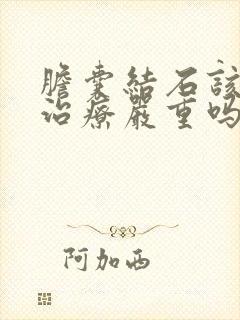 膽囊結石該
治療嚴重嗎
阿加西